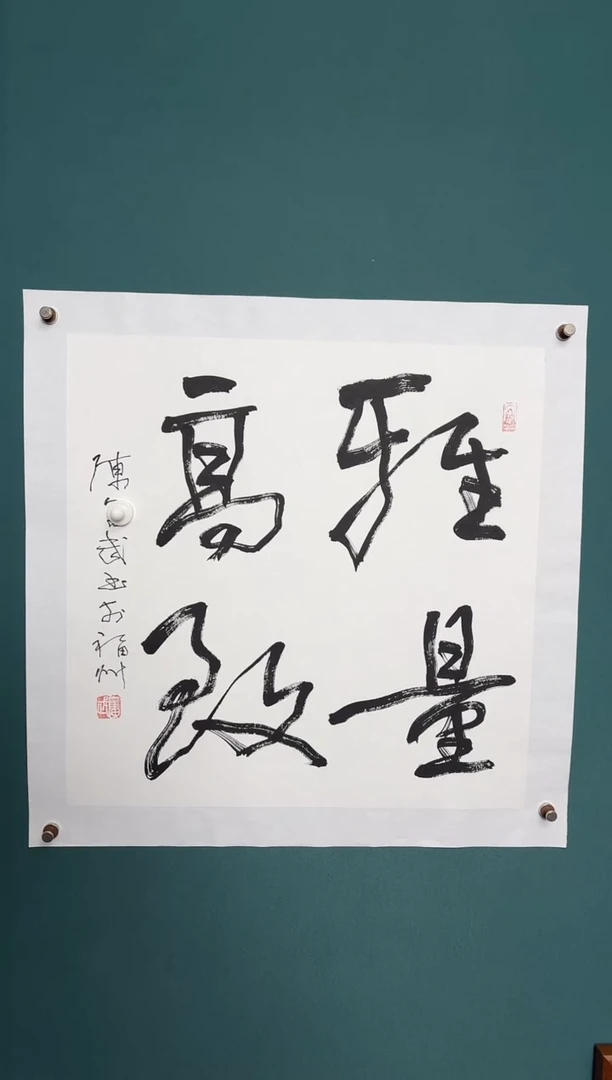 雅量
高致
陳武书于福州